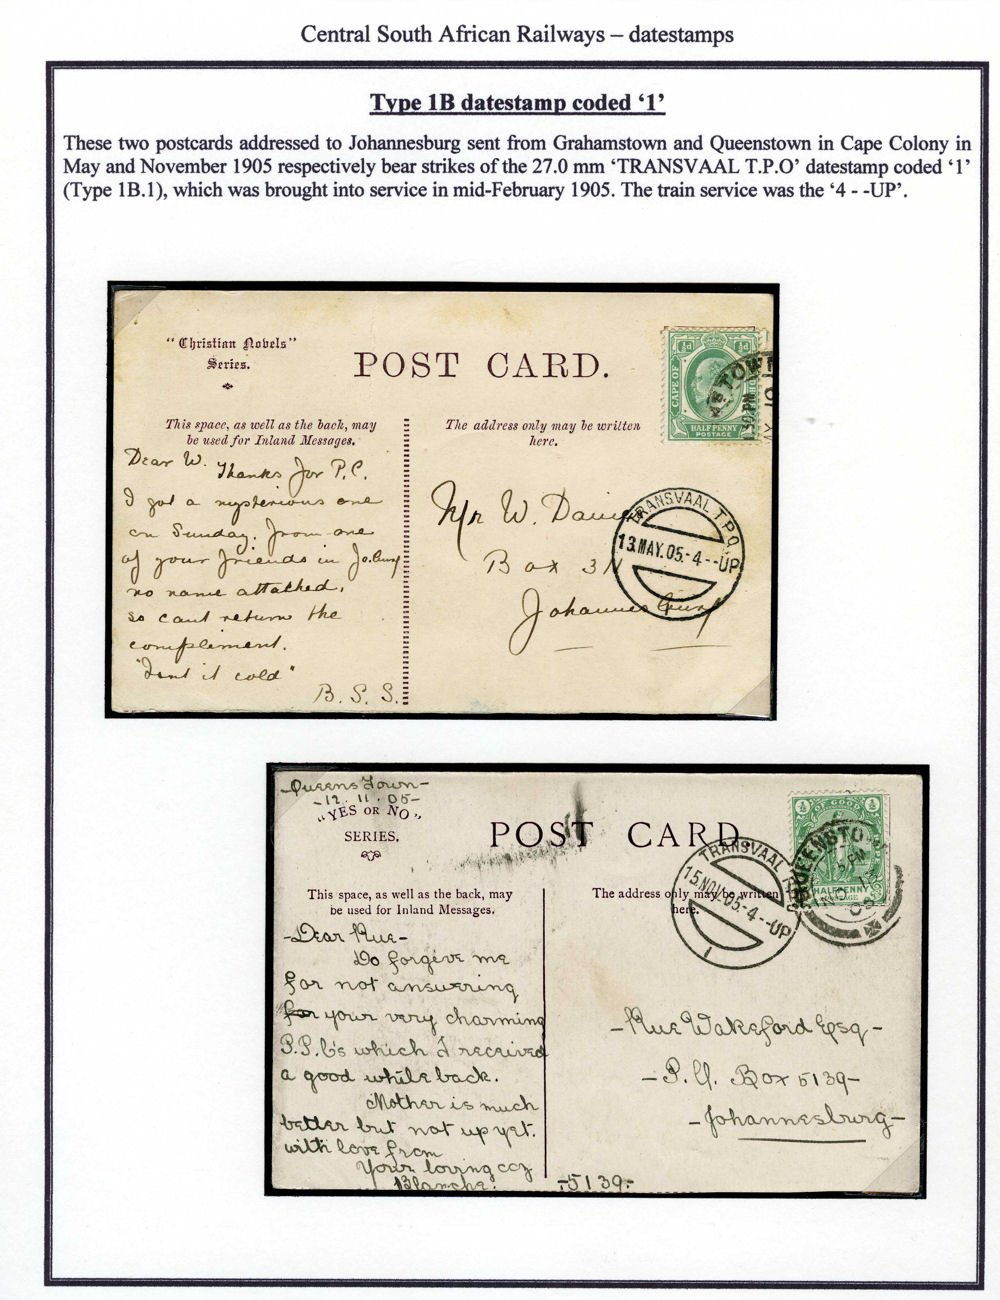 Central South African Railways – datestamps
Type 1B datestamp coded ‘1’
These two postcards addressed to Johannesburg sent from Grahamstown and Queenstown in Cape Colony in
May and November 1905 respectively bear strikes of the 27.0 mm ‘TRANSVAAL T.P.O’ datestamp coded ‘1’
(Type 1B.1), which was brought into service in mid-February 1905. The train service was the ‘4 - -UP’.
"Christian Novels"
Series.
POST CARD.
This space, as well as the back, may
be used for Inland Messages.
The address only may be written
here.
½d
½d
CAPE OF
HALFPENNY
POSTAGE
STOWN
Dear W. Thanks for P.C.
I got a mysterious one
on Sunday. from one
of your friends in Jo.burg
no name attached,
so cant return the
compliment.
"Isnt it cold"
B. S. S.
Mr W.
Box
Johannesburg
TRANSVAAL T.P.O.
13.MAY.05.-4--UP
1
Queenstown-
-12.11.05-
"YES OR NO"
SERIES.
POST CARD
This space, as well as the back, may
be used for Inland Messages.
The address only may be written
here.
TRANSVAAL T.P.O
15.NOV.05.-4--UP
1
½
OF GOOD
½
HALFPENNY
QUEENSTO
5 PM
NO
05
-Dear Rue-
Do forgive me
for not answering
for your very charming
P.P.C's which I received
a good while back.
Mother is much
better but not up yet.
with love from
Your loving coz
Blanche.
-5139-
-Rue Wakeford Esq-
-P.O. Box 5139-
-Johannesburg-